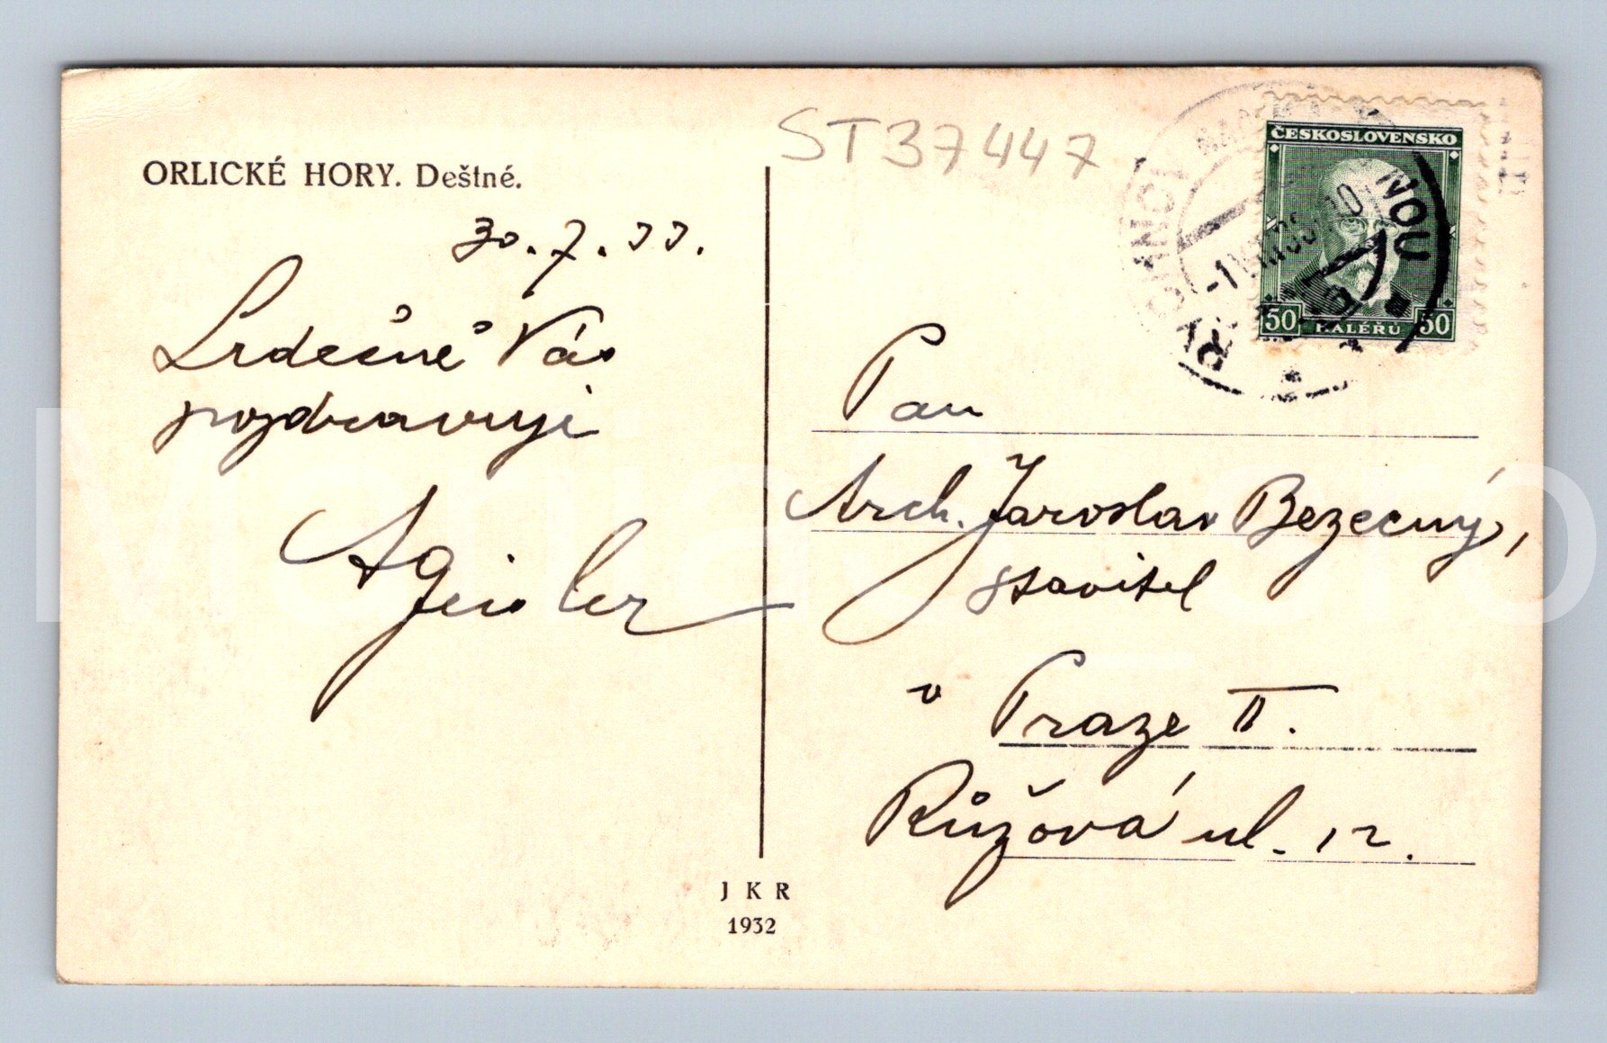 ST37447
ORLICKÉ HORY. Deštné.
30. 7. 33.
Srdečně Vás
pozdravuji
ČESKOSLOVENSKO
50 HALÉŘŮ 50
Pan
Arch. Jaroslav Bezecný,
stavitel
v Praze II.
Růžová ul. 12.
J K R
1932